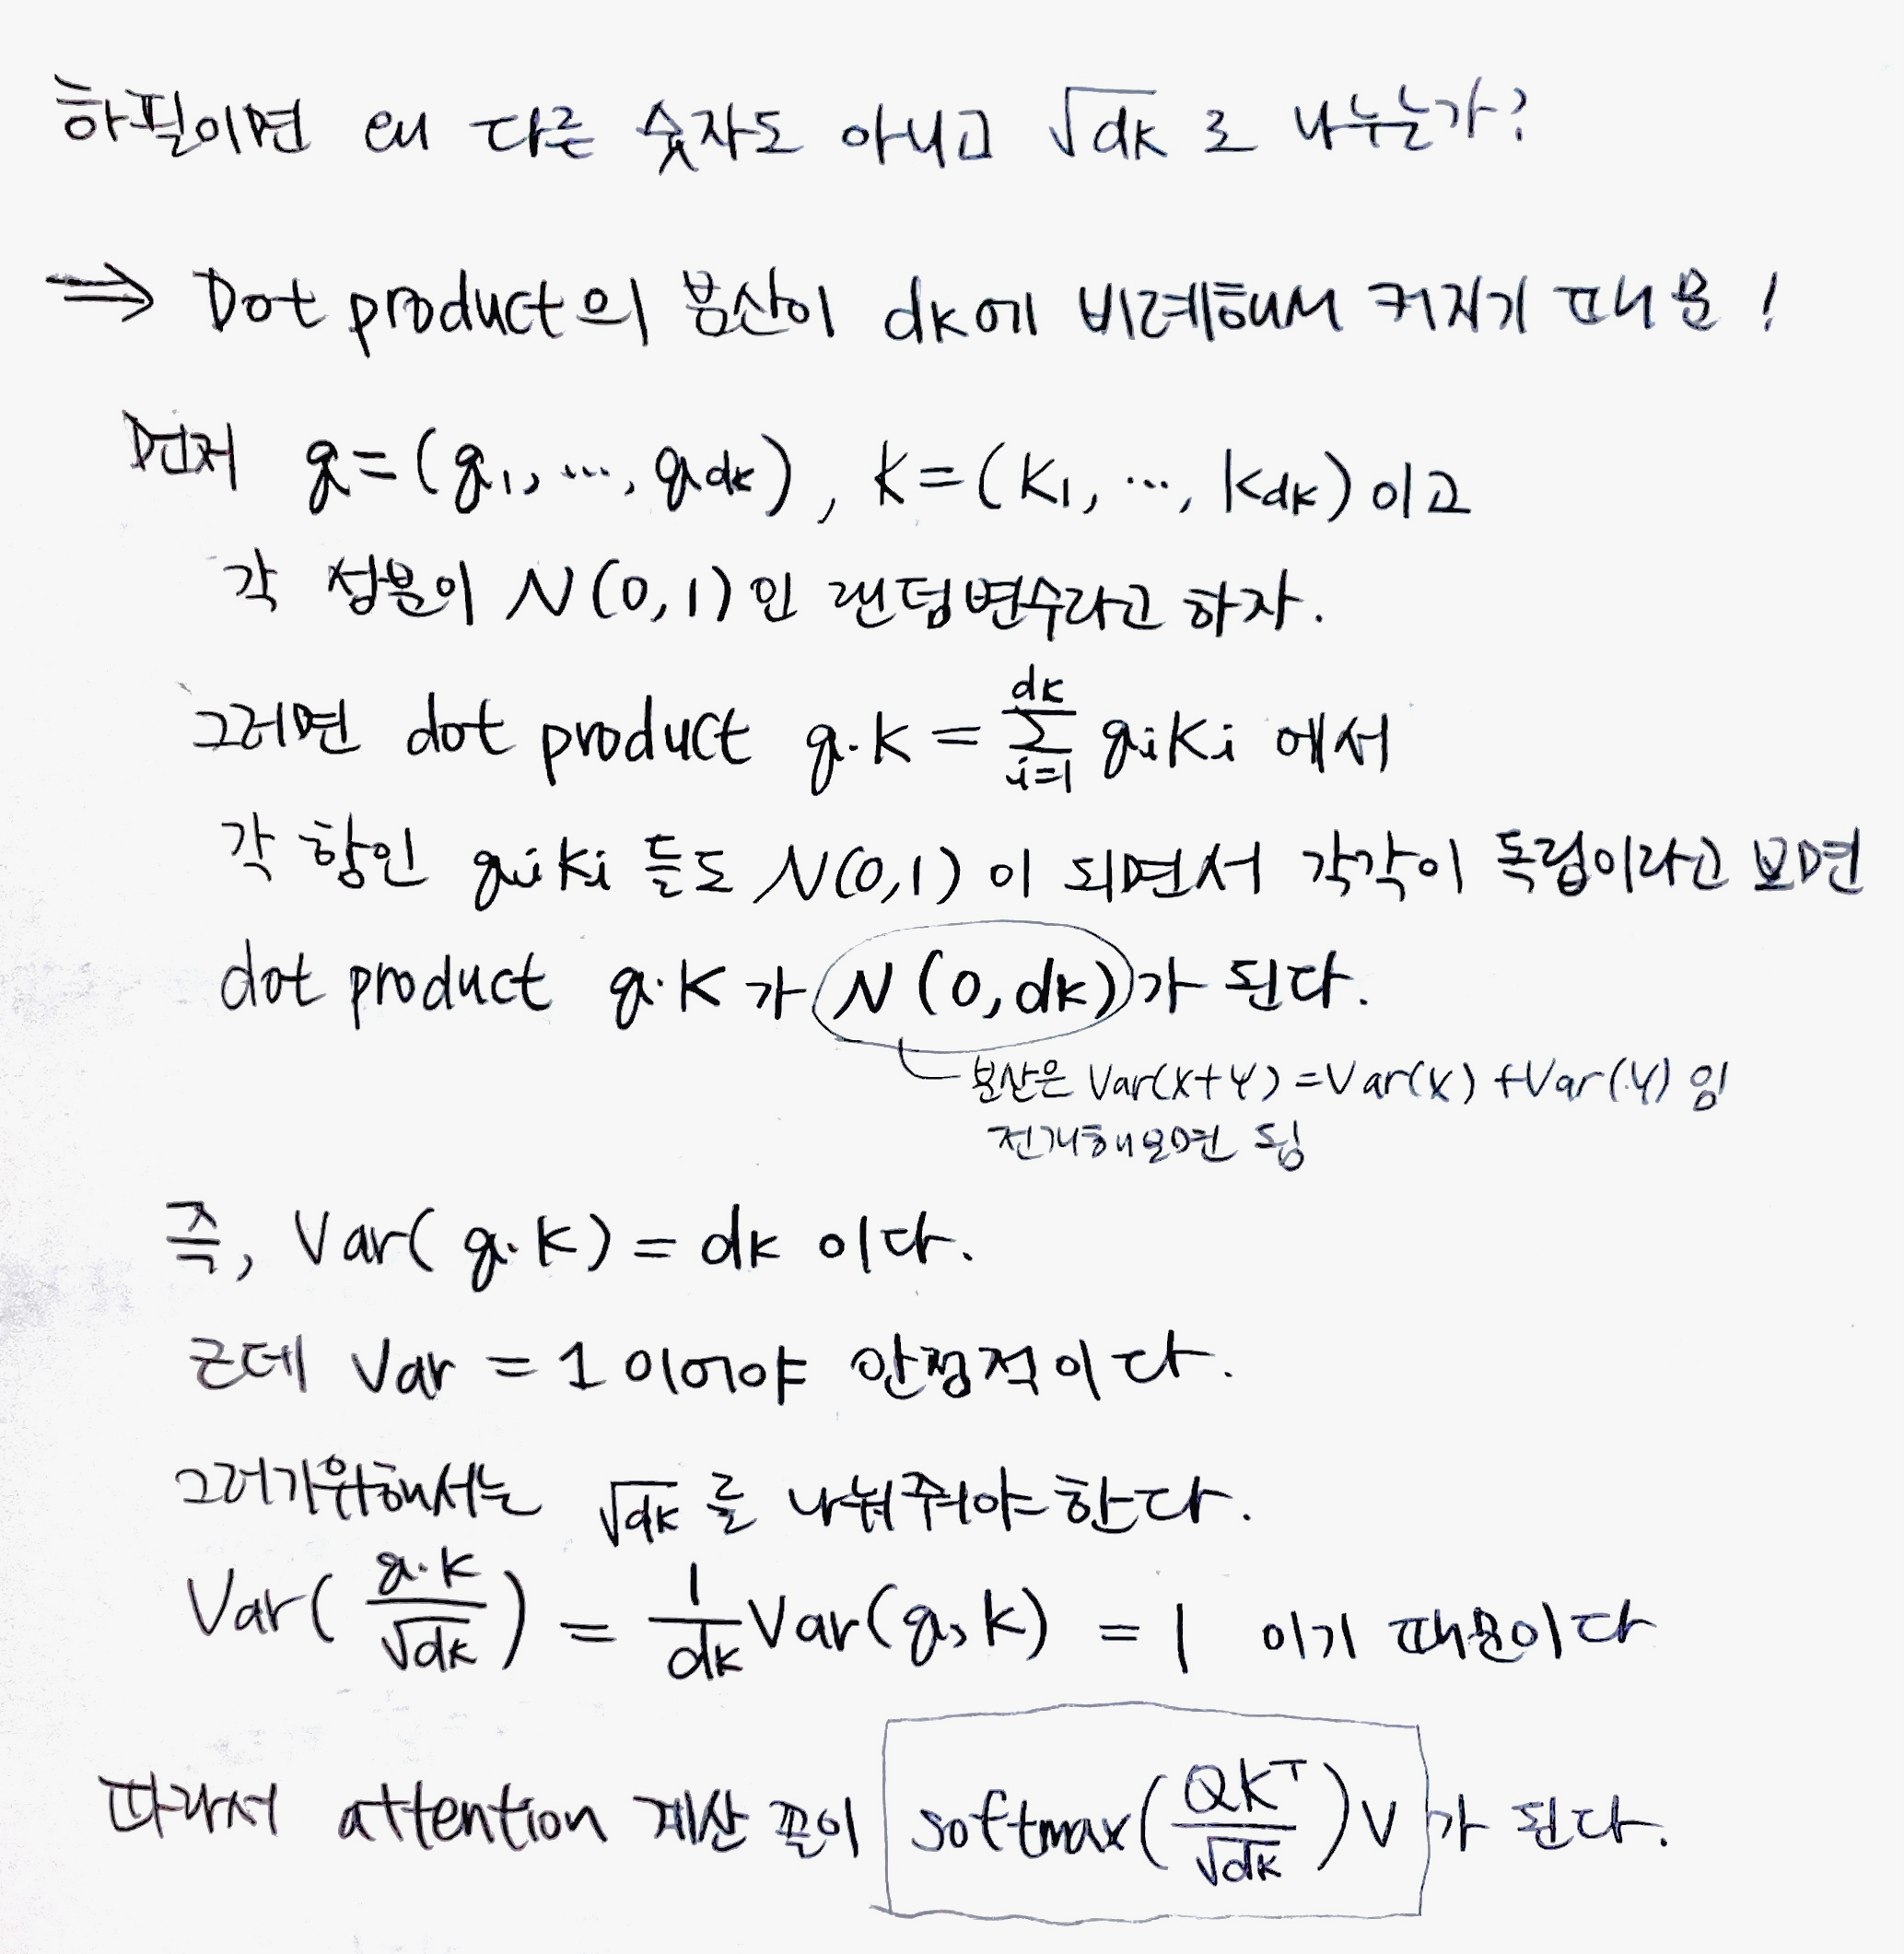 하필이면 왜 다른 숫자도 아니고 √dk 로 나누는가?
⇒ Dot product의 분산이 dk에 비례해서 커지기 때문!
먼저 q=(q1, ..., qdk), k=(k1, ..., kdk)이고
각 성분이 N(0,1)인 랜덤변수라고 하자.
그러면 dot product q·k = Σ_{i=1}^{dk} qiki 에서
각 항인 qiki 들도 N(0,1)이 되면서 각각이 독립이라고 보면
dot product q·k가 N(0, dk)가 된다.
분산은 Var(x+y) = Var(x) + Var(y) 임
전개해보면 됨
즉, Var(q·k) = dk 이다.
근데 Var = 1 이어야 안정적이다.
그러기위해서는 √dk 를 나눠줘야한다.
Var(q·k/√dk) = 1/dk Var(q,k) = 1 이기 때문이다
따라서 attention 계산 꼴이 softmax(QK^T/√dk)V 가 된다.